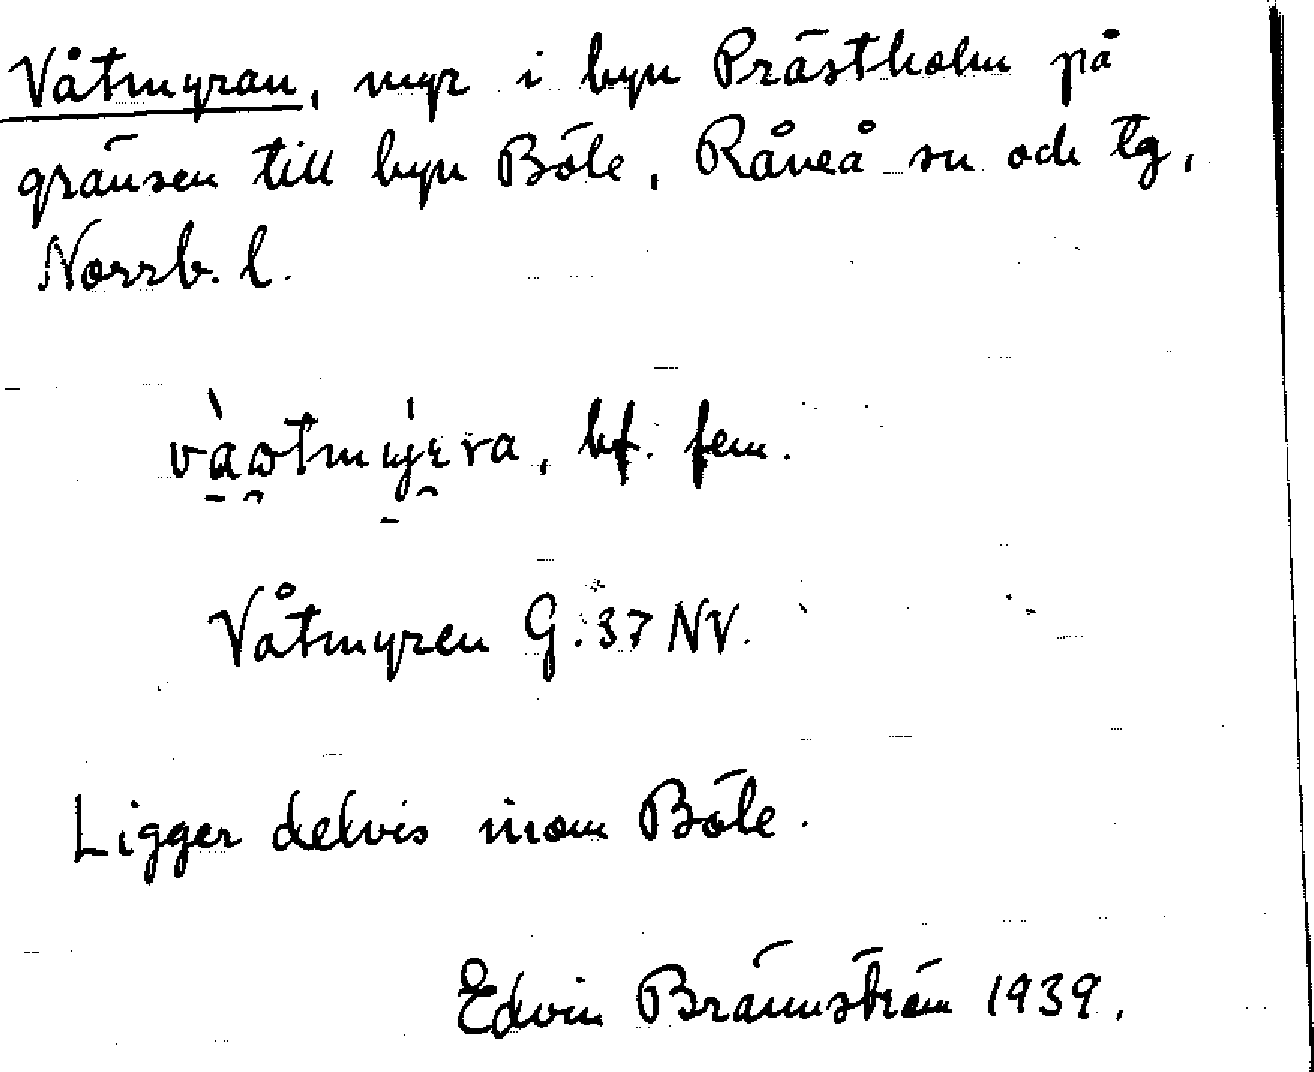 Våtmyran, myr i byn Prästholm på
gränsen till byn Böle, Råneå sn och tg,
Norrb. l.
bf. fem.
Våtmyren G. 37 NV.
Ligger delvis inom Böle.
Edvin Brännström 1939.